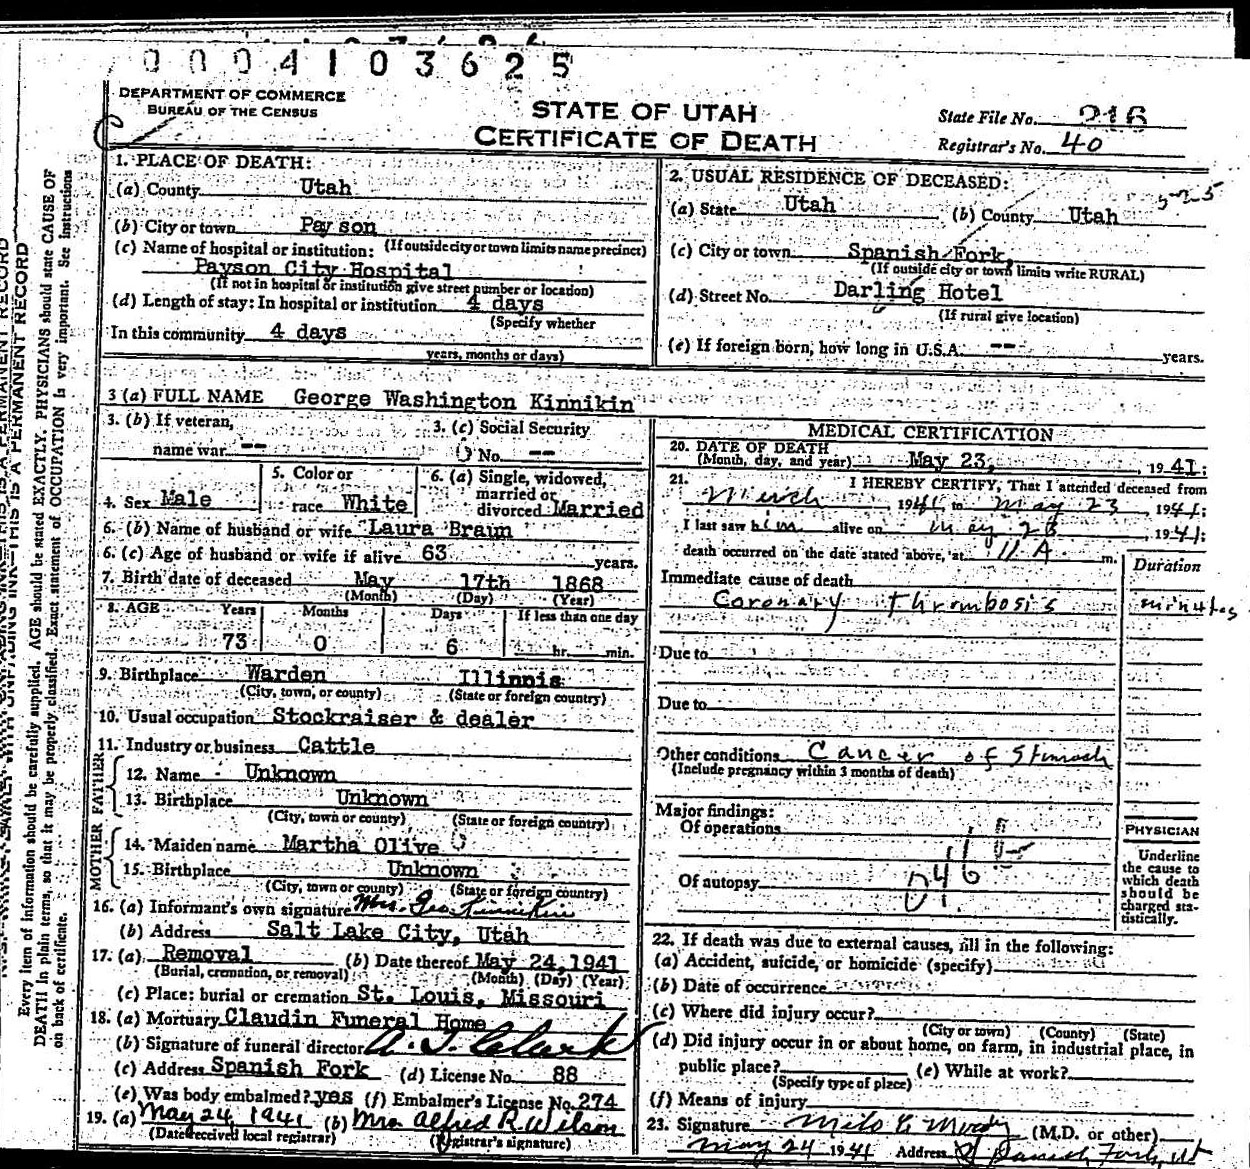 0004103625
DEPARTMENT OF COMMERCE
BUREAU OF THE CENSUS
STATE OF UTAH
CERTIFICATE OF DEATH
State File No. 216
Registrar's No. 40
1. PLACE OF DEATH:
(a) County Utah
(b) City or town Payson
(If outside city or town limits name precinct)
(c) Name of hospital or institution:
Payson City Hospital
(If not in hospital or institution give street number or location)
(d) Length of stay: In hospital or institution 4 days
(Specify whether
In this community 4 days
years, months or days)
2. USUAL RESIDENCE OF DECEASED:
5-25
(a) State Utah (b) County Utah
(c) City or town Spanish Fork,
(If outside city or town limits write RURAL)
(d) Street No. Darling Hotel
(If rural give location)
(e) If foreign born, how long in U.S.A. -- years.
3 (a) FULL NAME George Washington Kinnikin
3. (b) If veteran,
name war --
3. (c) Social Security
No. --
4. Sex Male
5. Color or
race White
6. (a) Single, widowed,
married or
divorced Married
6. (b) Name of husband or wife Laura Braim
6. (c) Age of husband or wife if alive 63 years.
7. Birth date of deceased May 17th 1868
(Month) (Day) (Year)
8. AGE Years Months Days If less than one day
73 0 6 hr. min.
9. Birthplace Warden Illinnis
(City, town, or county) (State or foreign country)
10. Usual occupation Stockraiser & dealer
11. Industry or business Cattle
FATHER
12. Name Unknown
13. Birthplace Unknown
(City, town or county) (State or foreign country)
MOTHER
14. Maiden name Martha Olive
15. Birthplace Unknown
(City, town or county) (State or foreign country)
16. (a) Informant's own signature Mrs. Geo Kinnikin
(b) Address Salt Lake City, Utah
17. (a) Removal (b) Date thereof May 24, 1941
(Burial, cremation, or removal) (Month) (Day) (Year)
(c) Place: burial or cremation St. Louis, Missouri
18. (a) Mortuary Claudin Funeral Home
(b) Signature of funeral director A. J. Clark
(c) Address Spanish Fork (d) License No. 88
(e) Was body embalmed? yes (f) Embalmer's License No. 274
19. (a) May 24, 1941 (b) Mrs. Alfred R. Wilson
(Date received local registrar) (Registrar's signature)
MEDICAL CERTIFICATION
20. DATE OF DEATH
(Month, day, and year) May 23, 1941;
21. I HEREBY CERTIFY, That I attended deceased from
March 1941 to May 23, 1941;
I last saw him alive on May 23 1941;
death occurred on the date stated above, at 11 A. m.
Duration
Immediate cause of death
Coronary thrombosis minutes
Due to
Due to
Other conditions Cancer of Stomach
(Include pregnancy within 3 months of death)
Major findings:
Of operations
Of autopsy
046
PHYSICIAN
Underline
the cause to
which death
should be
charged sta-
tistically.
22. If death was due to external causes, fill in the following:
(a) Accident, suicide, or homicide (specify)
(b) Date of occurrence
(c) Where did injury occur?
(City or town) (County) (State)
(d) Did injury occur in or about home, on farm, in industrial place, in
public place? (e) While at work?
(Specify type of place)
(f) Means of injury
23. Signature Milo C Moody (M.D. or other)
May 24 1941 Address Spanish Fork, Ut
Every item of information should be carefully supplied. AGE should be stated EXACTLY. PHYSICIANS should state CAUSE OF
DEATH in plain terms, so that it may be properly classified. Exact statement of OCCUPATION is very important. See instructions
on back of certificate.
THIS IS A PERMANENT RECORD